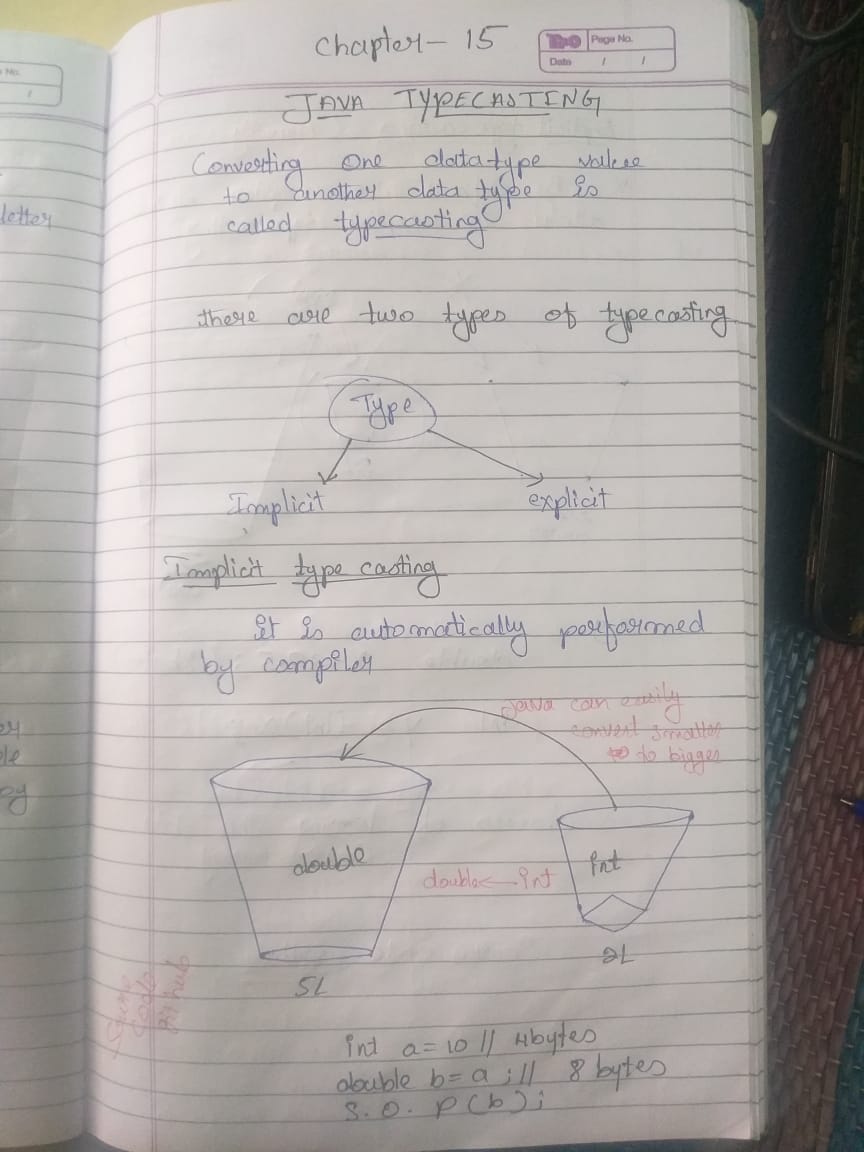 Chapter - 15
Page No.
Date / /
JAVA TYPECASTING
Converting one datatype value
to another data type is
called typecasting
there are two types of typecasting
Type
Implicit explicit
Implicit type casting
it is automatically performed
by compiler
Java can easily
convert smaller
to bigger
double
int
double ← int
5L
2L
int a = 10 // 4bytes
double b = a ; // 8 bytes
S. O. P(b);
No.
letter